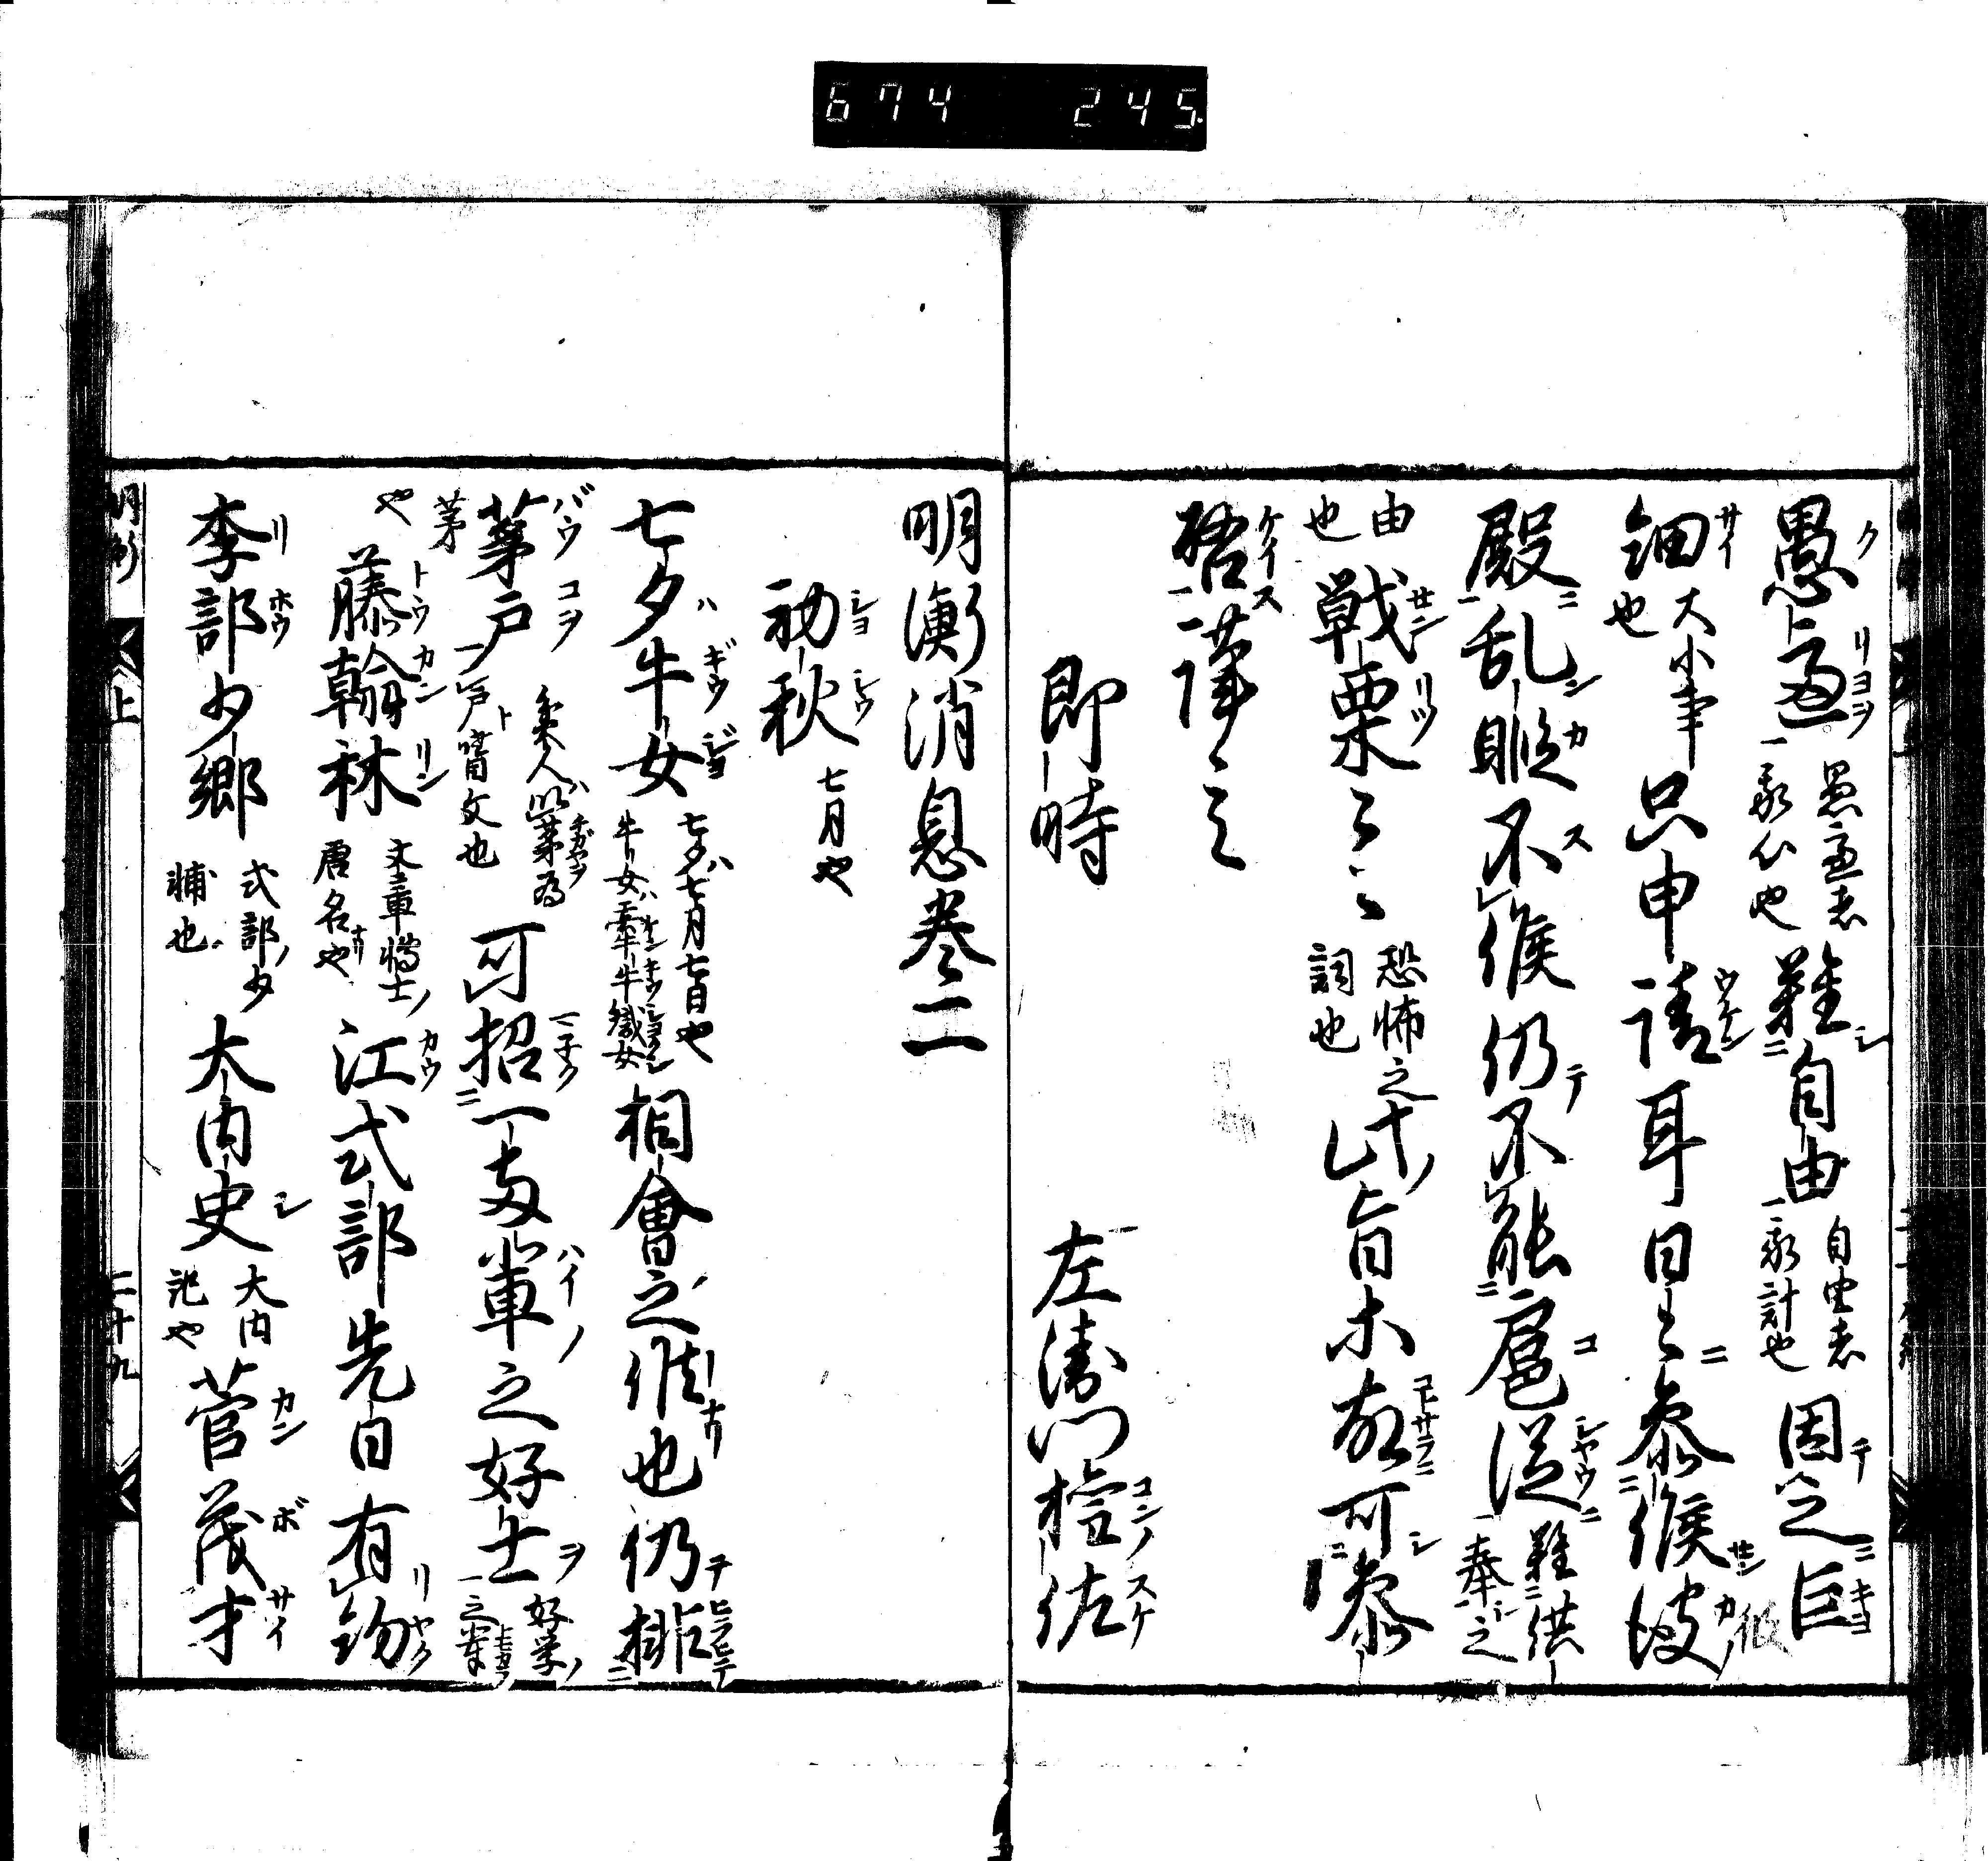 674 245
愚慮 愚慮者我心也 難自由 自由者我計也 因之巨
細 大小事也 只申請耳日々参候彼
殿乱縦不候仍不能扈従 難供奉之
由也 戦栗々々 恐怖之詞也 此旨木故可参
啓謹言
即時 左衛門権佐
明衡消息巻二
初秋 七月也
七夕牛女 七夕ハ七月七日也 牛女ハ牽牛織女 相會之候也仍排
茅戸 業人ハ以茅為戸ト嘗文也 可招一両輩之好士 好学ノ之輩
茅也 藤翰林 文章博士ノ唐名也 江式部先日有約
李部少卿 式部ノ少輔也 大内史 大内記也 菅茂才
明衡 上 二十九